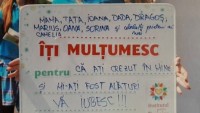 MAMA, TATA, IOANA, DADA, DRAGOȘ,
MARIUS, OANA, SORINA și
CAMELIA
ÎȚI MULȚUMESC
pentru CĂ AȚI CREZUT ÎN MINE
ȘI MI-AȚI FOST ALĂTURI
VĂ IUBESC!!!